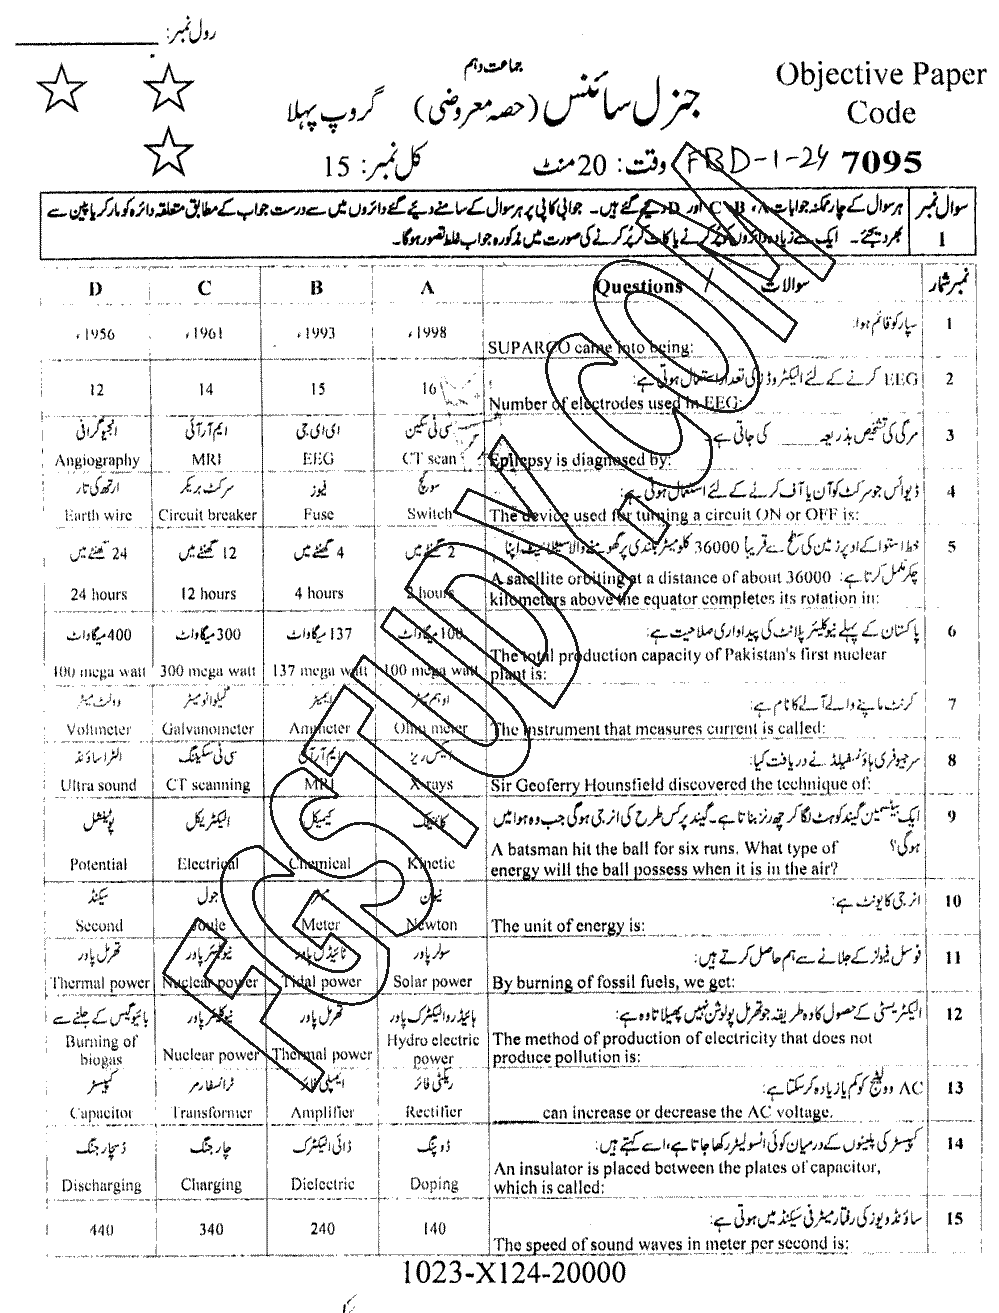 رول نمبر: ____________
جماعت دہم
Objective Paper
Code
جنرل سائنس (حصہ معروضی) گروپ پہلا
7095 FBD-1-24 وقت: 20 منٹ کل نمبر: 15
سوال نمبر 1
ہر سوال کے چار ممکنہ جوابات A، B، C اور D دیئے گئے ہیں۔ جوابی کاپی پر ہر سوال کے سامنے دیئے گئے دائروں میں سے درست جواب کے مطابق متعلقہ دائرہ کو مارکر یا پین سے
بھر دیجئے۔ ایک سے زیادہ دائروں کو پُر کرنے یا کاٹ کر پُر کرنے کی صورت میں مذکورہ جواب غلط تصور ہوگا۔
D C B A Questions / سوالات نمبر شمار
1 سپارکو قائم ہوا:
1956ء 1961ء 1993ء 1998ء
SUPARCO came into being:
2 EEG کرنے کے لئے الیکٹروڈز کی تعداد استعمال ہوتی ہے:
12 14 15 16
Number of electrodes used in EEG:
3 مرگی کی تشخیص بذریعہ ____ کی جاتی ہے۔
انجیوگرافی ایم آر آئی ای ای جی سی ٹی سکین
Angiography MRI EEG CT scan Epilepsy is diagnosed by:
4 ڈیوائس جو سرکٹ کو آن یا آف کرنے کے لئے استعمال ہوتی ہے:
ارتھ کی تار سرکٹ بریکر فیوز سوئچ
Earth wire Circuit breaker Fuse Switch The device used for turning a circuit ON or OFF is:
5 خط استوا کے اوپر زمین کی سطح سے قریباً 36000 کلومیٹر بلندی پر گھومنے والا سیٹلائیٹ اپنا
چکر مکمل کرتا ہے:
24 گھنٹے میں 12 گھنٹے میں 4 گھنٹے میں 2 گھنٹے میں
A satellite orbiting at a distance of about 36000
24 hours 12 hours 4 hours 2 hours kilometers above the equator completes its rotation in:
6 پاکستان کے پہلے نیوکلیئر پلانٹ کی پیداواری صلاحیت ہے:
400 میگاواٹ 300 میگاواٹ 137 میگاواٹ 100 میگاواٹ
The total production capacity of Pakistan's first nuclear
400 mega watt 300 mega watt 137 mega watt 100 mega watt plant is:
7 کرنٹ ماپنے والے آلے کا نام ہے:
وولٹ میٹر گیلوانومیٹر ایمیٹر اوہم میٹر
Voltmeter Galvanometer Ammeter Ohm meter The instrument that measures current is called:
8 سر جیوفری ہاؤنسفیلڈ نے دریافت کیا:
الٹراساؤنڈ سی ٹی سکیننگ ایم آر آئی ایکس ریز
Ultra sound CT scanning MRI X-rays Sir Geoferry Hounsfield discovered the technique of:
9 ایک بیٹسمین گیند کو ہٹ لگا کر چھ رنز بناتا ہے۔ گیند پر کس طرح کی انرجی ہوگی جب وہ ہوا میں
ہوگی؟
پوٹینشل الیکٹریکل کیمیکل کائنیٹک
A batsman hit the ball for six runs. What type of
Potential Electrical Chemical Kinetic energy will the ball possess when it is in the air?
10 انرجی کا یونٹ ہے:
سیکنڈ جول میٹر نیوٹن
Second Joule Meter Newton The unit of energy is:
11 فوسل فیولز کے جلانے سے ہم حاصل کرتے ہیں:
تھرمل پاور نیوکلیئر پاور ٹائیڈل پاور سولر پاور
Thermal power Nuclear power Tidal power Solar power By burning of fossil fuels, we get:
12 الیکٹریسٹی کے حصول کا وہ طریقہ جو تھرمل پولوشن نہیں پھیلاتا وہ ہے:
بائیوگیس کے جلنے سے نیوکلیئر پاور تھرمل پاور ہائیڈرو الیکٹرک پاور
The method of production of electricity that does not
Burning of biogas Nuclear power Thermal power Hydro electric power produce pollution is:
13 AC وولٹیج کو کم یا زیادہ کر سکتا ہے:
کپیسٹر ٹرانسفارمر ایمپلی فائر ریکٹی فائر
Capacitor Transformer Amplifier Rectifier ____ can increase or decrease the AC voltage.
14 کپیسٹر کی پلیٹوں کے درمیان کوئی انسولیٹر رکھا جاتا ہے، اسے کہتے ہیں:
ڈسچارجنگ چارجنگ ڈائی الیکٹرک ڈوپنگ
An insulator is placed between the plates of capacitor,
Discharging Charging Dielectric Doping which is called:
15 ساؤنڈ ویوز کی رفتار میٹر فی سیکنڈ میں ہوتی ہے:
440 340 240 140
The speed of sound waves in meter per second is:
1023-X124-20000
FGSTUDY.COM